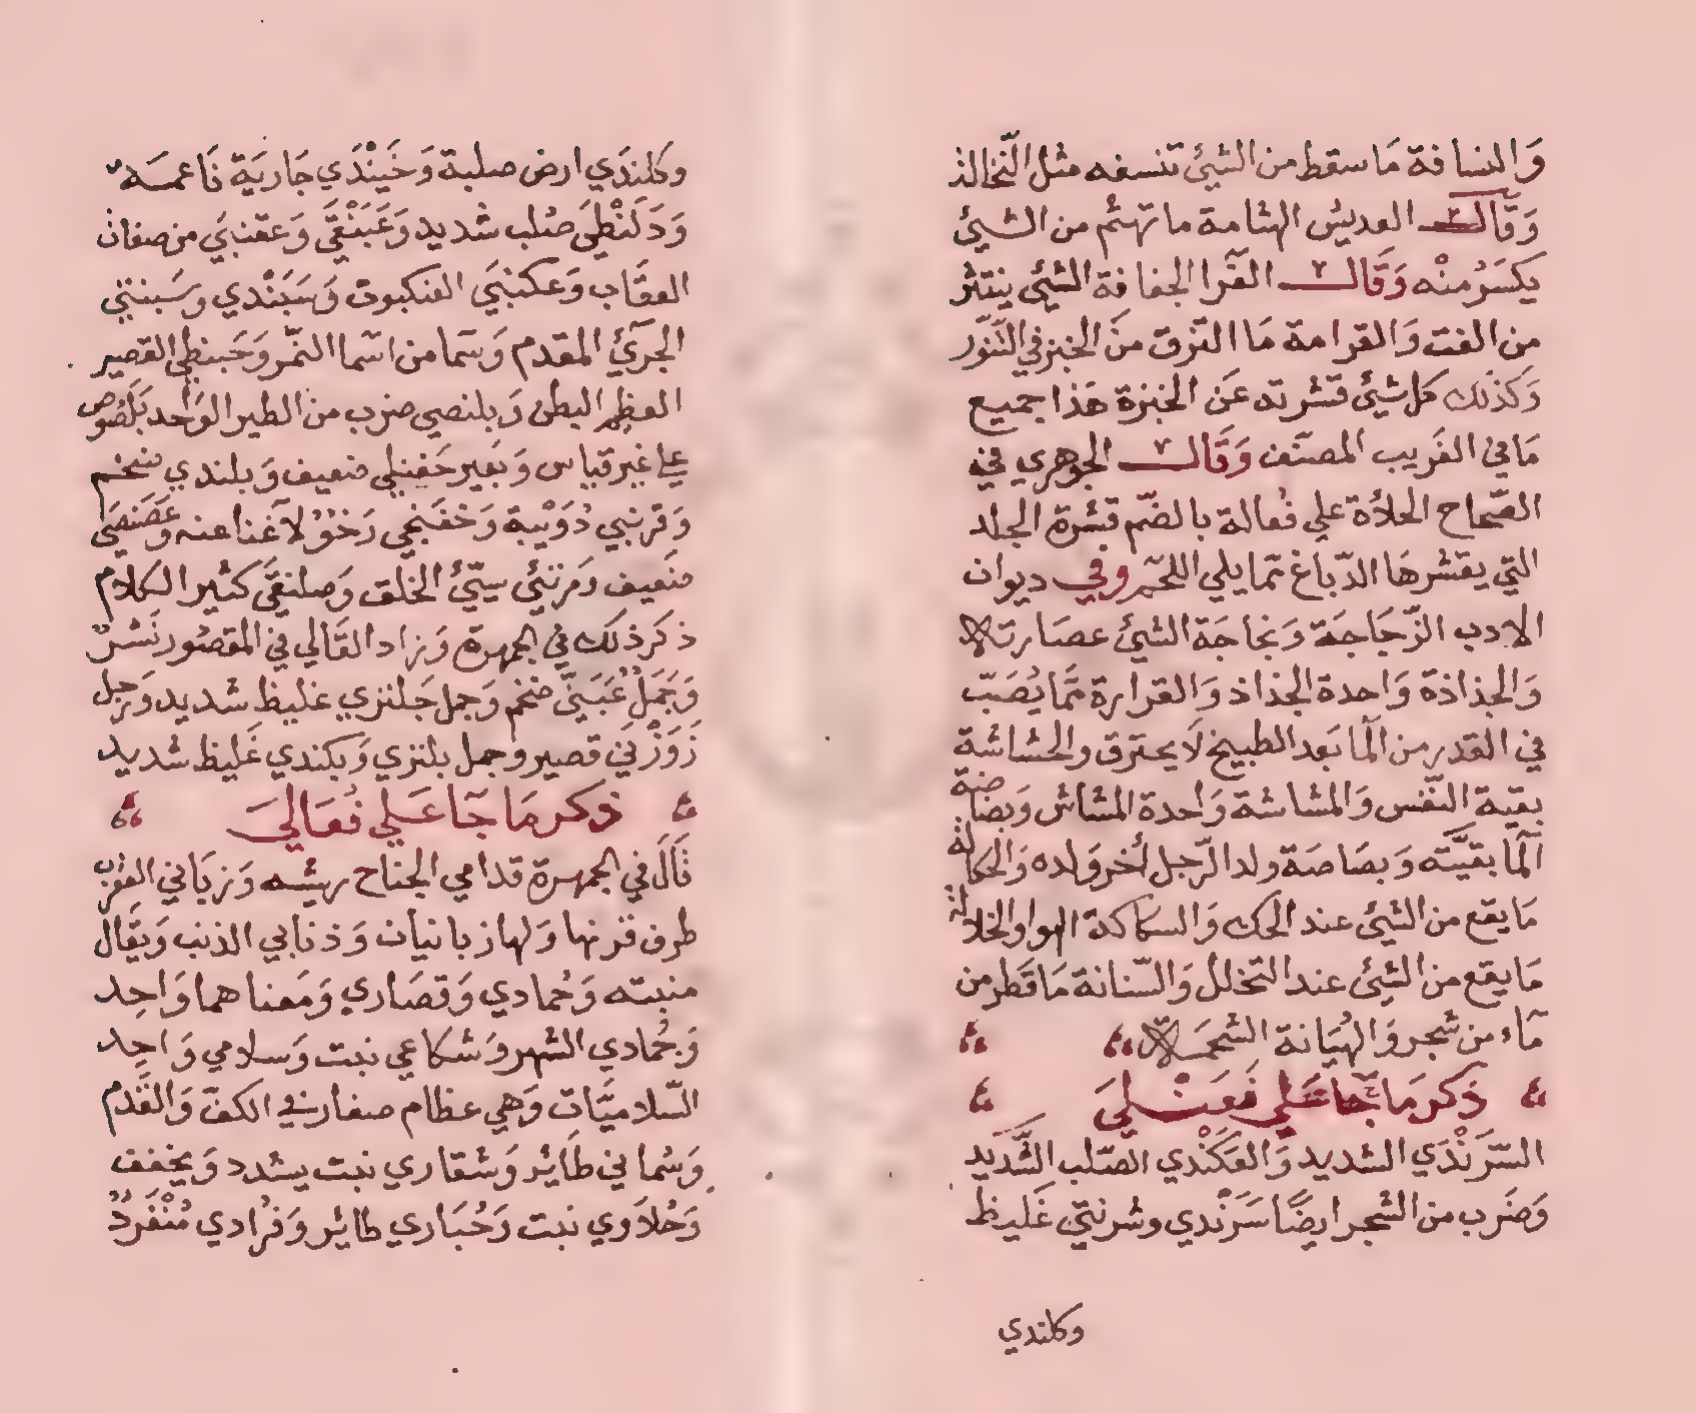 وَالنسافة مَا سقط من الشيئ تنسفه مثل النّخالة
وَقَالَ العدبس الهتامة ما تهتم من الشيئ
يكسَرُ منْه وَقَالَ الفَرا الجفافة الشَيئ ينتثر
من القت وَالقرامة مَا التزق منَ الخبز في التَنوّر
وَكذَلك كل شيئ قشرته عَن الخبزة هَذا جميع
مَا في الغَريب المصنّف وَقَالَ الجوهري في
الصّحاح الحلأة علي فُعالة بالضّم قشرة الجلد
التي يقشرهَا الدّباغ ممّا يلي اللحمْ وفي ديوان
الادب الزّجَاجَة وَنجاجَة الشيئ عصَارته
وَالجذاذة وَاحدة الجذاذ وَالقرارة مَّا يُصَبّ
في القدر من المَا بَعد الطبيخ لَا يحترق والحشاشة
بقية النّفس وَالمشاشة وَاحدة المشاش وَبضاضة
المَا بقيَّته وَبصَاصَة ولد الرّجل أخر وَلده وَالحكالة
مَا يقع من الشيئ عند الحك وَالسكاكة الهوا والخلالة
مَا يقع من الشيئ عند التّخلل وَالسّنانة مَا قَطر من
مآء من شجر وَالهُنَانة الشحمَة
ذكر مَا جَا عَلي فَعَنْلَيَ
السَّرَنْدَي الشديد وَالعَكَنْدي الصّلب الشَّديد
وَضَرب من الشجر ايضًا سَرَنْدي وشرنتي غَليظ
وكلندي
وكلَندَي ارض صلبة وَخَبَنْدَي جَاريَة نَاعمَة
وَدَلَنْظيَ صُلب شديد وَعَبَنْقَي وَعقنبيَ من صفات
العقَاب وَعكنبَي العنكبوت وَسَبَنْدي وسَبنتي
الجَرَيئ المقدم وَسما من اسّما النّمر وَحَبنطي القصير
العظيم البطن وَبلنصي ضرب من الطير الوَاحد بَلَصُوص
علي غير قيَاس وَبَعير حَفنكي ضعيف وَبلندي ضخم
وَقرنبي دُوَيْبة وَخفَنجي رَخْوٌ لآ غَنا عنه وَعَصَنصَي
ضَعيف وَمرنئي سيّئُ الخلق وَصلنقَي كثير الكلام
ذكر ذلك في الجمهرة وَزاد القَالي في المقصُور نَسْرٌ
وَجَمَلٌ عُبَنَيّ ضخم وَجمل جَلنزي غليظ شديد وَرجل
زَوَزْنَي قصير وجمل بلنزي وَبكندي غَليظ شديد
ذكر مَا جَا عَلي فُعَاليَ
قَالَ في الجمهرة قدامي الجناح ريشه وَزبَاني العقرب
طرف قرنها وَلها زبانيان وَذنابي الذنب وَيقَال
منبته وَحُمادي وَقصَاري وَمَعناهما وَاحِد
وَجُمادي الشهر وَشكاعي نبت وَسلامي وَاحِد
السّلاميَّات وَهي عظام صغار في الكفّ وَالقَدم
وَسُماني طَائر وَشقاري نبت يشدد وَيخفف
وَحُلاَوي نبت وَحُبَاري طائر وَفُرادي مُنْفَردٌ